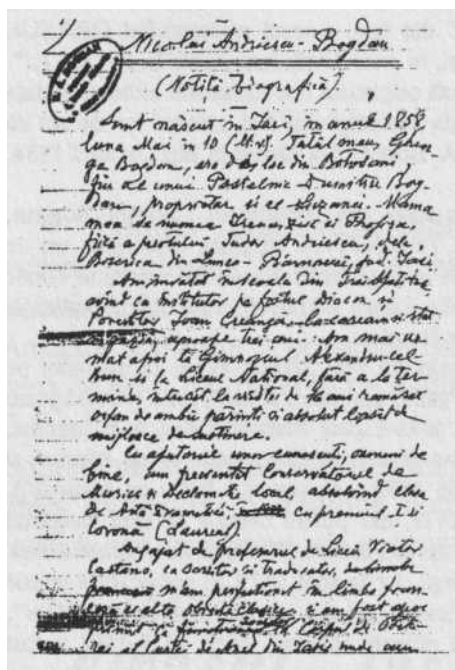 Nicolai Andriescu-Bogdan
(Notiță biografică)
Sunt născut în Iași, în anul 1858
luna Mai în 10 (st.v). Tatăl meu, Gheor
ge Bogdan, era de loc din Botoșani
fiu al unui Postelnic Dumitru Bog-
dan, proprietar și el Mama
mea se numea și Profira,
fiică a protului Tudor Andriescu, dela
Biserica din Lunca - jud. Iași
Am învățat în școala din Trei Ierarhi
avînd ca institutor pe fostul Diacon și
Povestitor Ioan Creangă, la care am și stat
aproape trei ani. Am mai ur
mat apoi la Gimnaziul Alexandru cel
Bun și la Liceul Național, fără a le ter
mina, întrucît la vîrsta de ani rămăsei
orfan de ambii părinți și absolut lipsit de
mijloace de susținere.
Cu ajutorul unor cunoscuți, oameni de
bine, am frecventat Conservatorul de
Muzică și Declamație local, absolvind clasa
de Artă cu premiul I și
Coroană (Laureat).
Angajat de profesorul de Liceu Victor
Castano, ca scriitor și traducător,
m'am perfecționat în limba fran-
ceză și alte și am fost apoi
primit la
rai al Curtei de Apel din Iași unde am